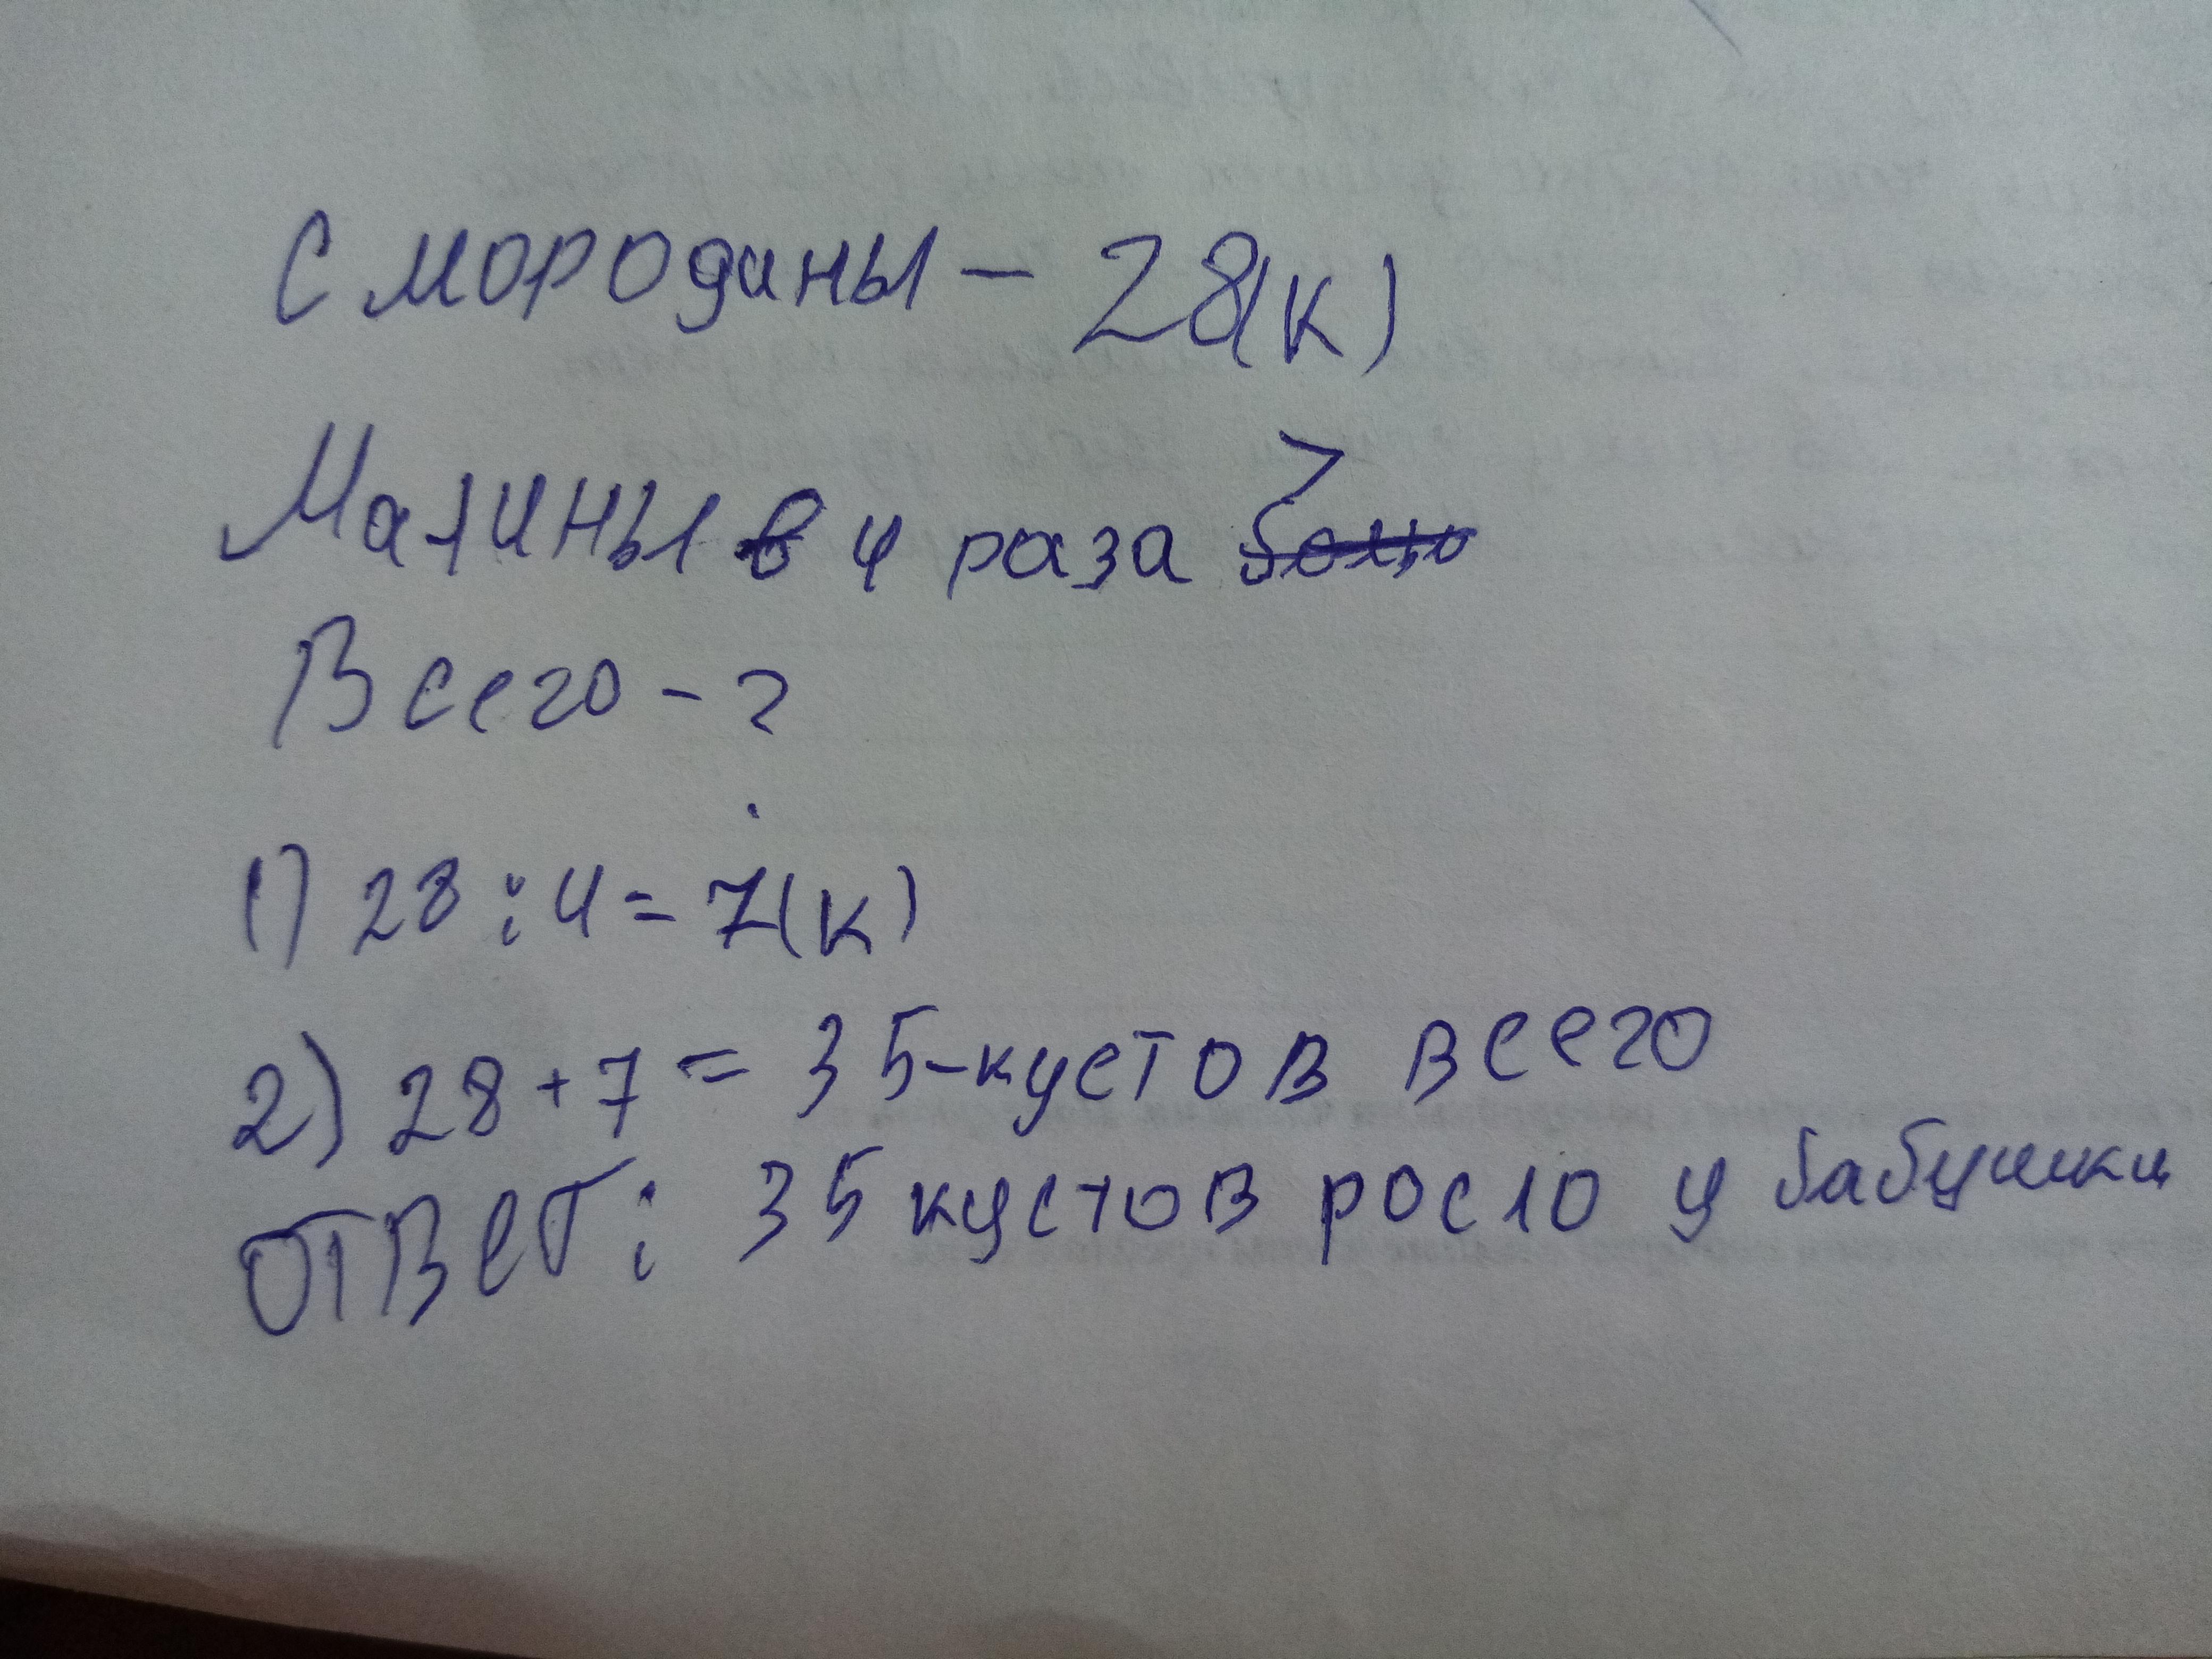 Смородины – 28(к)
Малины в 4 раза >
Всего – ?
1) 28 : 4 = 7(к)
2) 28 + 7 = 35 – кустов всего
Ответ: 35 кустов росло у бабушки